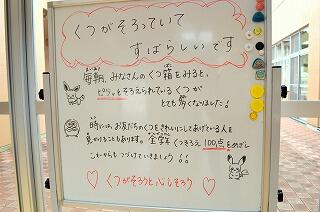 くつがそろっていて
すばらしいです
毎朝、みなさんのくつ箱をみると、
ピリッとそろえられているくつが
とても多くなりました！
時には、お友だちのくつをきれいにしてあげている人を
見かけることもあります。全学年くつそろえ100点をめざし
これからもつづけていきましょう！！
♡くつがそろうと心もそろう♡